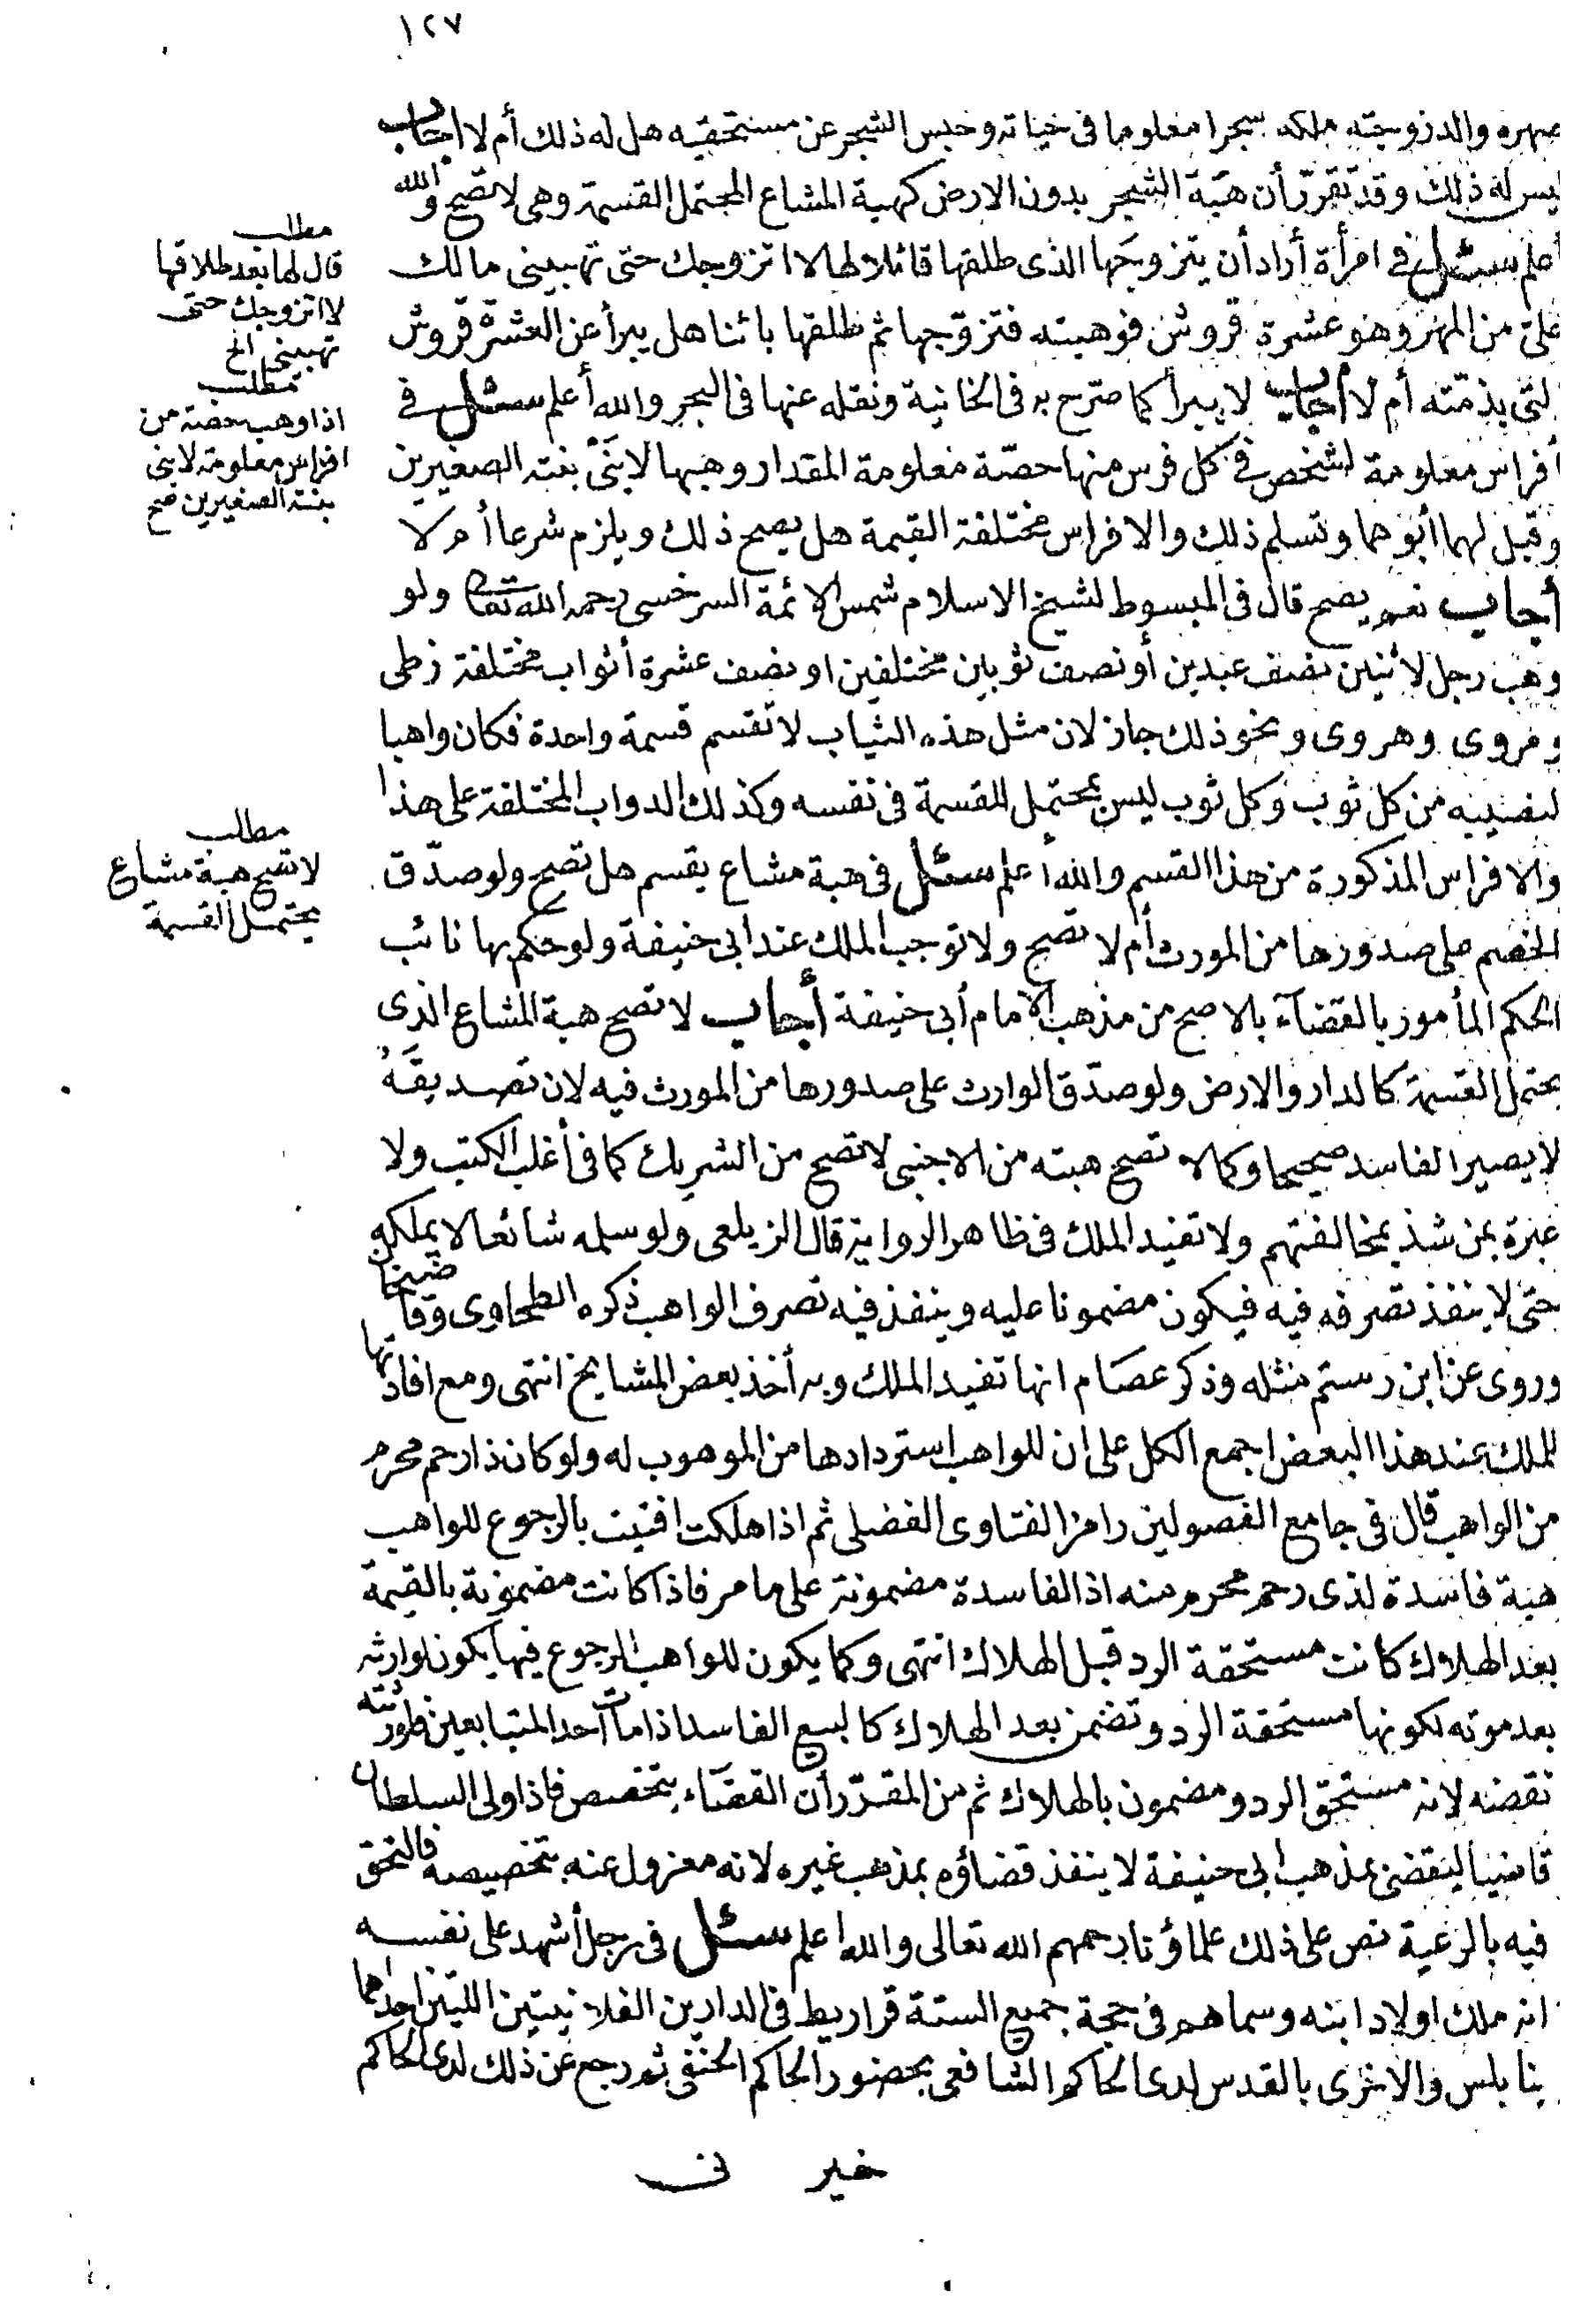 ١٢٧
صهره والد زوجته ملكه شجرا معلوما فى حياته وحبس الشجر عن مستحقيه هل له ذلك أم لا اجاب
ليس له ذلك وقد تقرّر أن هبة الشجر بدون الارض كهبة المشاع المحتمل القسمة وهى لا تصح والله
أعلم سئل فى امرأة أراد أن يتزوجها الذى طلقها قائلا لها لا اتزوجك حتى تهبينى مالك
علىّ من المهر وهو عشرة قروش فوهبته فتزوّجها ثم طلقها بائنا هل يبرأ عن العشرة قروش
التى بذمّته أم لا أجاب لا يبرأ كما صرّح به فى الخانية ونقله عنها فى البحر والله أعلم سئل فى
أفراس معلومة لشخص فى كل فرس منها حصّة معلومة المقدار وهبها لابنَىْ بنته الصغيرين
وقبل لهما أبوهما وتسلم ذلك والافراس مختلفة القيمة هل يصح ذلك ويلزم شرعا أم لا
أجاب نعم يصح قال فى المبسوط لشيخ الاسلام شمس الائمة السرخسى رحمه الله تعالى ولو
وهب رجل لاثنين نصف عبدين أو نصف ثوبين مختلفين او نصف عشرة أثواب مختلفة زطى
ومروى وهروى ونحو ذلك جاز لان مثل هذه الثياب لا تقسم قسمة واحدة فكان واهبا
لنصيبه من كل ثوب وكل ثوب ليس بمحتمل للقسمة فى نفسه وكذلك الدواب المختلفة على هذا
والافراس المذكورة من هذا القسم والله أعلم سئل فى هبة مشاع يقسم هل تصح ولو صدّق
الخصم على صدورها من المورث أم لا تصح ولا توجب الملك عند ابى حنيفة ولو حكم بها نائب
الحكم المأمور بالقضآء بالاصح من مذهب الامام أبى حنيفة أجاب لا تصح هبة المشاع الذى
يحتمل القسمة كالدار والارض ولو صدّق الوارث على صدورها من المورث فيه لان تصديقَهُ
لا يصير الفاسد صحيحا وكما لا تصح هبته من الاجنبى لا تصح من الشريك كما فى أغلب الكتب ولا
عبرة بمن شذ بمخالفتهم ولا تفيد الملك فى ظاهر الرواية قال الزيلعى ولو سلمه شائعا لا يملكه
حتى لا ينفذ تصرفه فيه فيكون مضمونا عليه وينفذ فيه تصرف الواهب ذكره الطحاوى وقاضيخان
وروى عن ابن رستم مثله وذكر عصام انها تفيد الملك وبه أخذ بعض المشايخ انتهى ومع افادتها
للملك عند هذا البعض اجمع الكل على ان للواهب استردادها من الموهوب له ولو كان ذا رحم محرم
من الواهب قال فى جامع الفصولين رامزا لفتاوى الفضلى ثم اذا هلكت افتيت بالرجوع للواهب
هبة فاسدة لذى رحم محرم منه اذ الفاسدة مضمونة على ما مر فاذا كانت مضمونة بالقيمة
بعد الهلاك كانت مستحقة الرد قبل الهلاك انتهى وكما يكون للواهب الرجوع فيها يكون لوارثه
بعد موته لكونها مستحقة الرد وتضمن بعد الهلاك كالبيع الفاسد اذا مات أحد المتبايعين فلورثته
نقضه لانه مستحق الرد ومضمون بالهلاك ثم من المقرّر أن القضاء يتخصص فاذا ولى السلطان
قاضيا ليقضى بمذهب ابى حنيفة لا ينفذ قضاؤه بمذهب غيره لانه معزول عنه بتخصيصه فالتحق
فيه بالرعية نص على ذلك علماؤنا رحمهم الله تعالى والله اعلم سئل فى رجل أشهد على نفسه
انه ملك اولاد ابنه وسماهم فى حجة جميع الستة قراريط فى الدارين الفلانيتين اللتين احداهما
بنابلس والاخرى بالقدس لدى الحاكم الشافعى بحضور الحاكم الحنفى ثم رجع عن ذلك لدى الحاكم
خير نى
مطلب
قال لها بعد طلاقها
لا اتزوجك حتى
تهبينى الخ
مطلب
اذا وهب حصة من
افراس معلومة لابنى
بنته الصغيرين صح
مطلب
لا تصح هبة مشاع
يحتمل القسمة